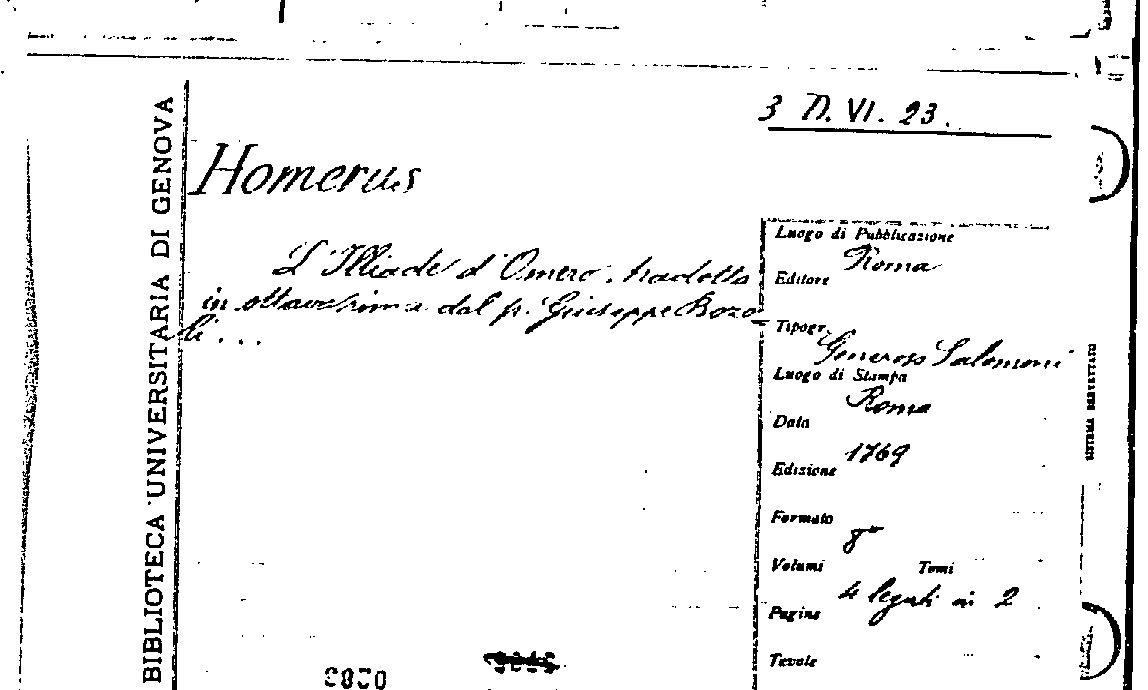 BIBLIOTECA UNIVERSITARIA DI GENOVA
3 D. VI. 23.
Homerus
L'Illiade d'Omero. tradotta
in ottava rima dal p. Giuseppe Bozo-
li...
Luogo di Pubblicazione
Roma
Editore
Tipogr.
Generoso Salomoni
Luogo di Stampa
Roma
Data
1769
Edizione
Formato
8°
Volumi Tomi
4 legati in 2
Pagine
Tavole
SISTEMA BREVETTATO